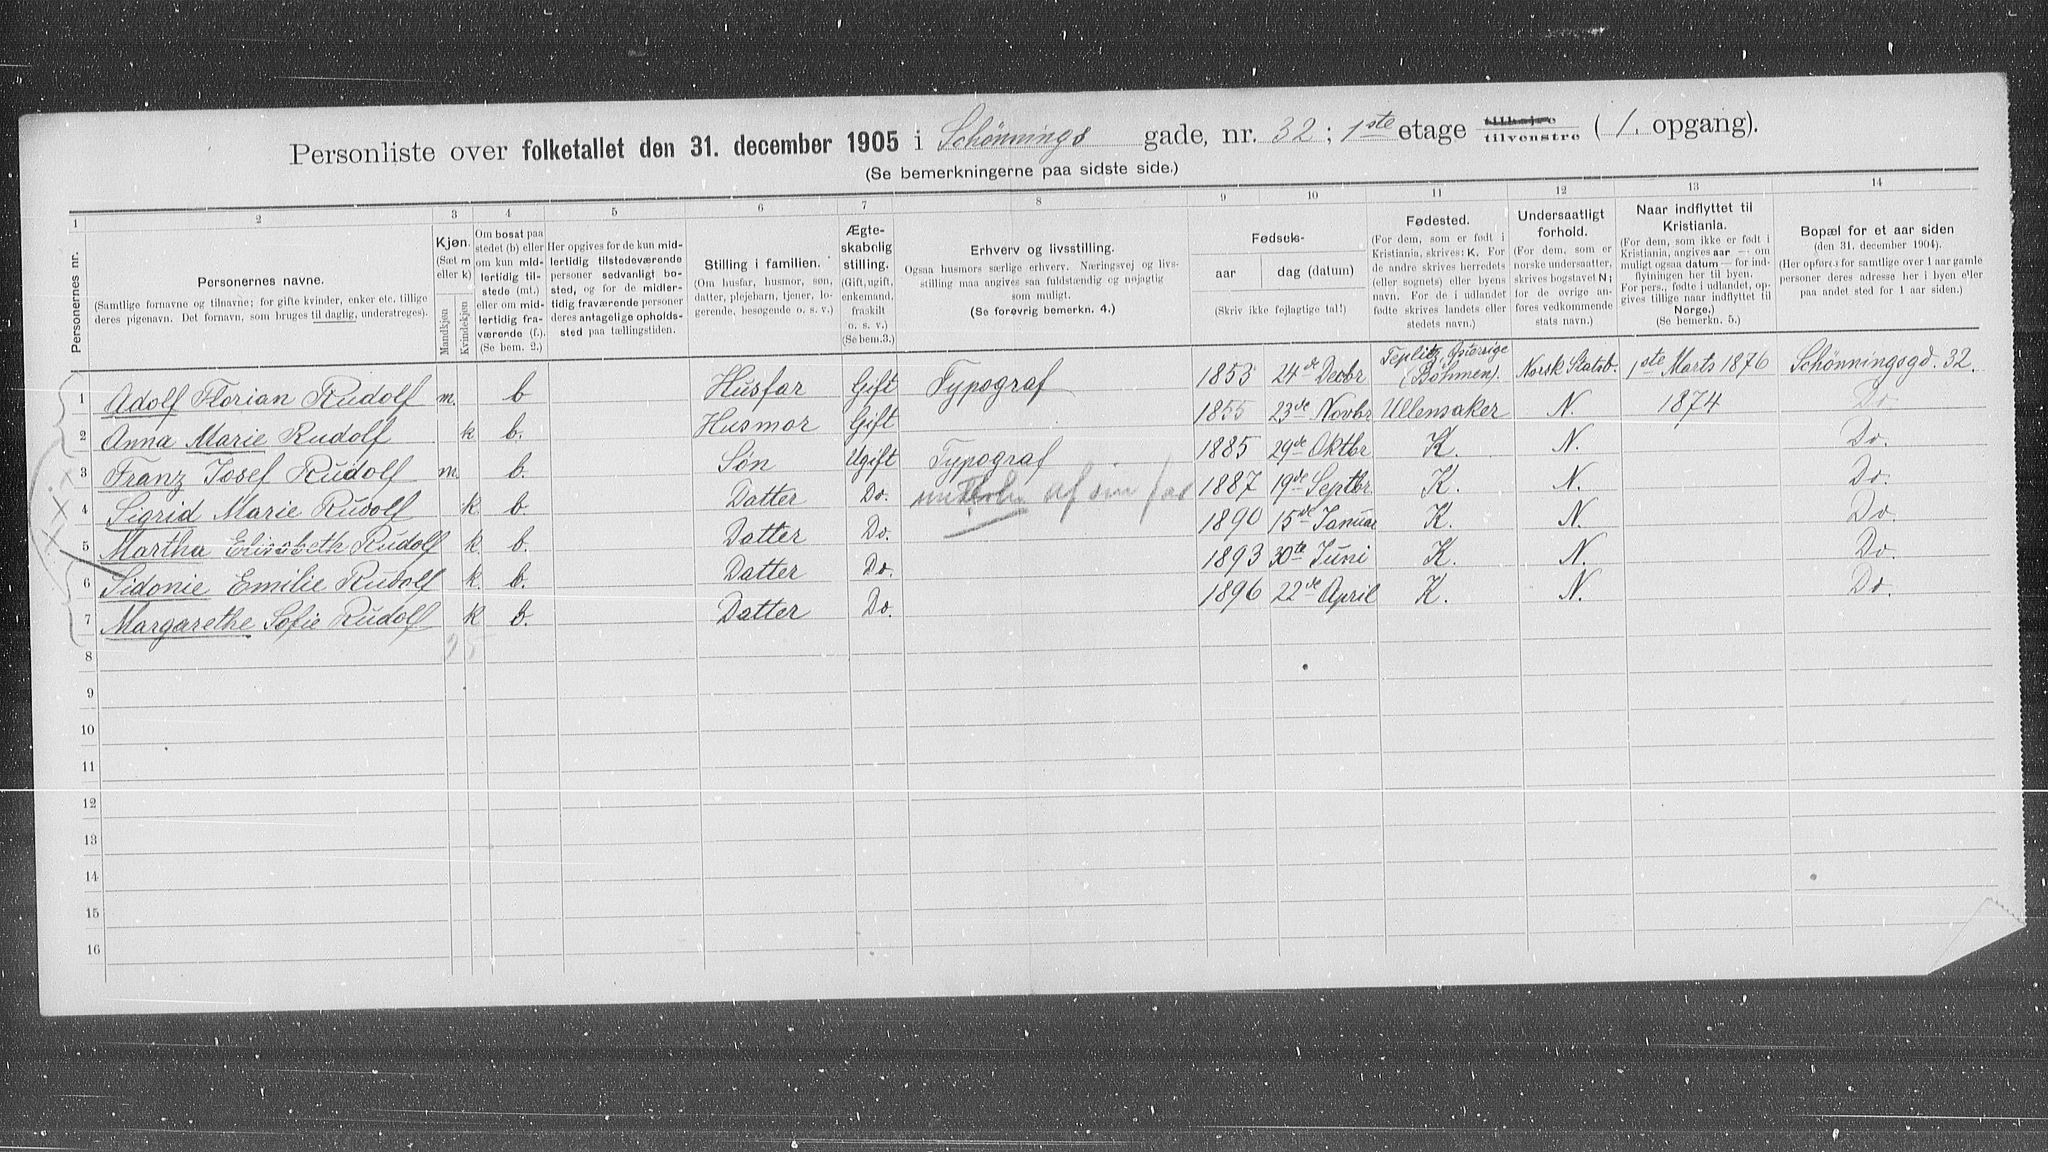 Personliste over folketallet den 31. december 1905 i Schønnings gade, nr. 32; 1ste etage tilhøjre tilvenstre (1. opgang).
(Se bemerkningerne paa sidste side.)
1 2 3 4 5 6 7 8 9 10 11 12 13 14
Personernes nr.
Personernes navne.
(Samtlige fornavne og tilnavne; for gifte kvinder, enker etc. tillige deres pigenavn. Det fornavn, som bruges til daglig, understreges).
Kjøn.
(Sæt m eller k)
Mandkjøn
Kvindekjøn
Om bosat paa stedet (b) eller om kun midlertidig tilstede (mt.) eller om midlertidig fraværende (f.).
(Se bem. 2.)
Her opgives for de kun midlertidig tilstedeværende personer sedvanligt bosted, og for de midlertidig fraværende personer deres antagelige opholdssted paa tællingstiden.
Stilling i familien.
(Om husfar, husmor, søn, datter, plejebarn, tjener, logerende, besøgende o. s. v.)
Ægteskabelig stilling.
(Gift, ugift, enkemand, fraskilt o. s. v.)
(Se bem. 3.)
Erhverv og livsstilling.
Ogsaa husmors særlige erhverv. Næringsvej og livsstilling maa angives saa fuldstændig og nøjagtig som muligt.
(Se forøvrig bemerkn. 4.)
Fødsels-
aar dag (datum)
(Skriv ikke fejlagtige tal!)
Fødested.
(For dem, som er født i Kristiania, skrives: K. For de andre skrives herredets (eller sognets) eller byens navn. For de i udlandet fødte skrives landets eller stedets navn.)
Undersaatligt forhold.
(For dem, som er norske undersaatter, skrives bogstavet N; for de øvrige anføres vedkommende stats navn.)
Naar indflyttet til Kristiania.
(For dem, som ikke er født i Kristiania, angives aar — om muligt ogsaa datum — for indflytningen her til byen. For pers., fødte i udlandet, opgives tillige naar indflyttet til Norge.)
(Se bemerkn. 5.)
Bopæl for et aar siden
(den 31. december 1904).
(Her opføres for samtlige over 1 aar gamle personer deres adresse her i byen eller paa andet sted for 1 aar siden.)
1 Adolf Florian Rudolf m. b Husfar Gift Typograf 1853 24de Decbr Teplitz, (Böhmen). Norsk Statsb. 1ste Marts 1876 Schönningsgd. 32.
2 Anna Marie Rudolf k b. Husmor Gift 1855 23de Novbr Ullensaker N. 1874 Do
3 Franz Josef Rudolf m. b. Søn Ugift Typograf 1885 29de Oktbr K. N. Do.
4 Sigrid Marie Rudolf k b Datter Do. af sin far 1887 19de Septbr. K. N. Do.
5 Martha Elisabeth Rudolf k. b. Datter Do. 1890 15de Januar K. N. Do.
6 Sidonie Emilie Rudolf k. b. Datter Do. 1893 30te Juni K. N. Do.
7 Margarethe Sofie Rudolf k b. Datter Do 1896 22de April K. N. Do.
8
9
10
11
12
13
14
15
16